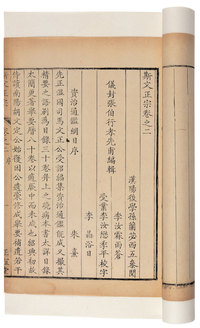 斯文正宗卷之二
漢陽後學孫蘭苾西五參閱
李汝霖雨蒼
儀封張伯行孝先甫編輯
受業李汝懋孝平校字
李品浴日
資治通鑑綱目序
朱熹
先正溫國司馬文正公受詔編集資治通鑑既成又撮其
精要之語別為目錄三十卷并上之晚病本書太詳目錄
太簡更著舉要曆八十卷以適厥中而未成也紹興初故
侍讀南陽胡文定公始復因公遺稾修成舉要補遺若干